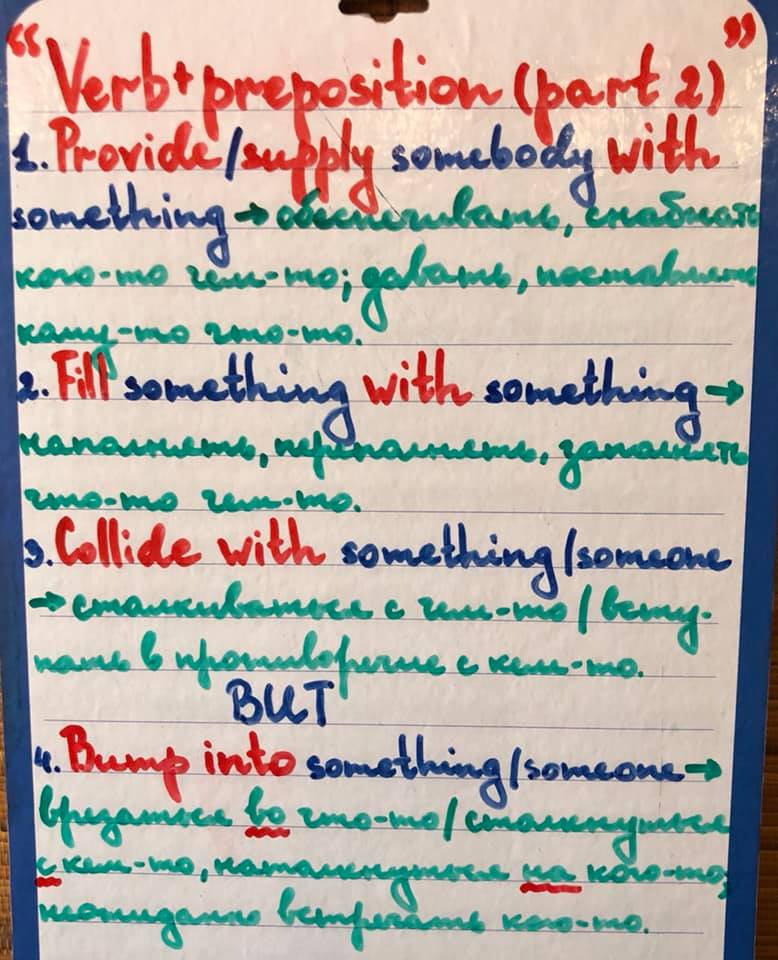 "Verb+preposition (part 2)"
1. Provide/supply somebody with
something → обеспечивать, снабжать
кого-то чем-то; давать, поставлять
кому-то что-то.
2. Fill something with something →
наполнять, переполнять, заполнять
что-то чем-то.
3. Collide with something/someone
→ сталкиваться с чем-то / всту-
пать в противоречие с кем-то.
BUT
4. Bump into something/someone →
врезаться во что-то/столкнуться
с кем-то, натолкнуться на кого-то;
неожиданно встречать кого-то.